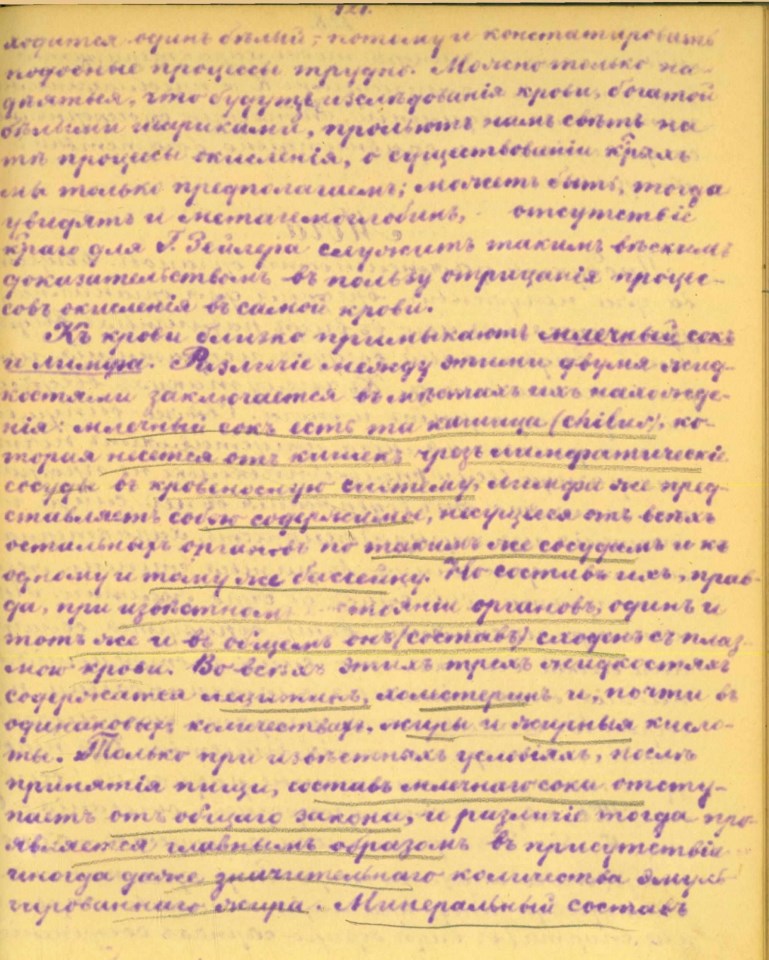 121.
ходится одинъ бѣлый; потому и констатировать
подобные процесы трудно. Можно только на-
дѣяться, что будутъ изслѣдованія крови, богатой
бѣлыми шариками, прольютъ намъ свѣтъ на
тѣ процесы окисленія, о существованіи крыхъ
мы только предполагаемъ; можетъ быть, тогда
увидятъ и метагемоглобинъ, отсутствіе
края для Г. Зейлера служитъ такимъ вѣскимъ
доказательствомъ въ пользу отрицанія процес-
совъ окисленія въ самой крови.
Къ крови близко примыкаютъ млечный сокъ
и лимфа. Различіе между этими двумя жид-
костями заключается въ мѣстахъ ихъ нахожде-
нія: млечный сокъ есть та кашица (chilus), ко-
торая несется отъ кишекъ чрезъ лимфатическіе
сосуды въ кровеносную систему; лимфа же пред-
ставляетъ собою содержимое, несущееся отъ всѣхъ
остальныхъ органовъ по такимъ же сосудамъ и къ
одному и тому же бассейну. Но составъ ихъ, прав-
да, при извѣстномъ стояніи органовъ, одинъ и
тотъ же и въ общемъ онъ (составъ) сходенъ съ плаз-
мою крови. Во всѣхъ этихъ трехъ жидкостяхъ
содержатся лецитинъ, холестеринъ и, почти въ
одинаковыхъ количествахъ, жиры и жирныя кисло-
ты. Только при извѣстныхъ условіяхъ, послѣ
принятія пищи, составъ млечнаго сока отсту-
паетъ отъ общаго закона, и различіе тогда про-
является главнымъ образомъ въ присутствіи
иногда даже значительнаго количества эмуль-
гированнаго жира. Минеральный составъ